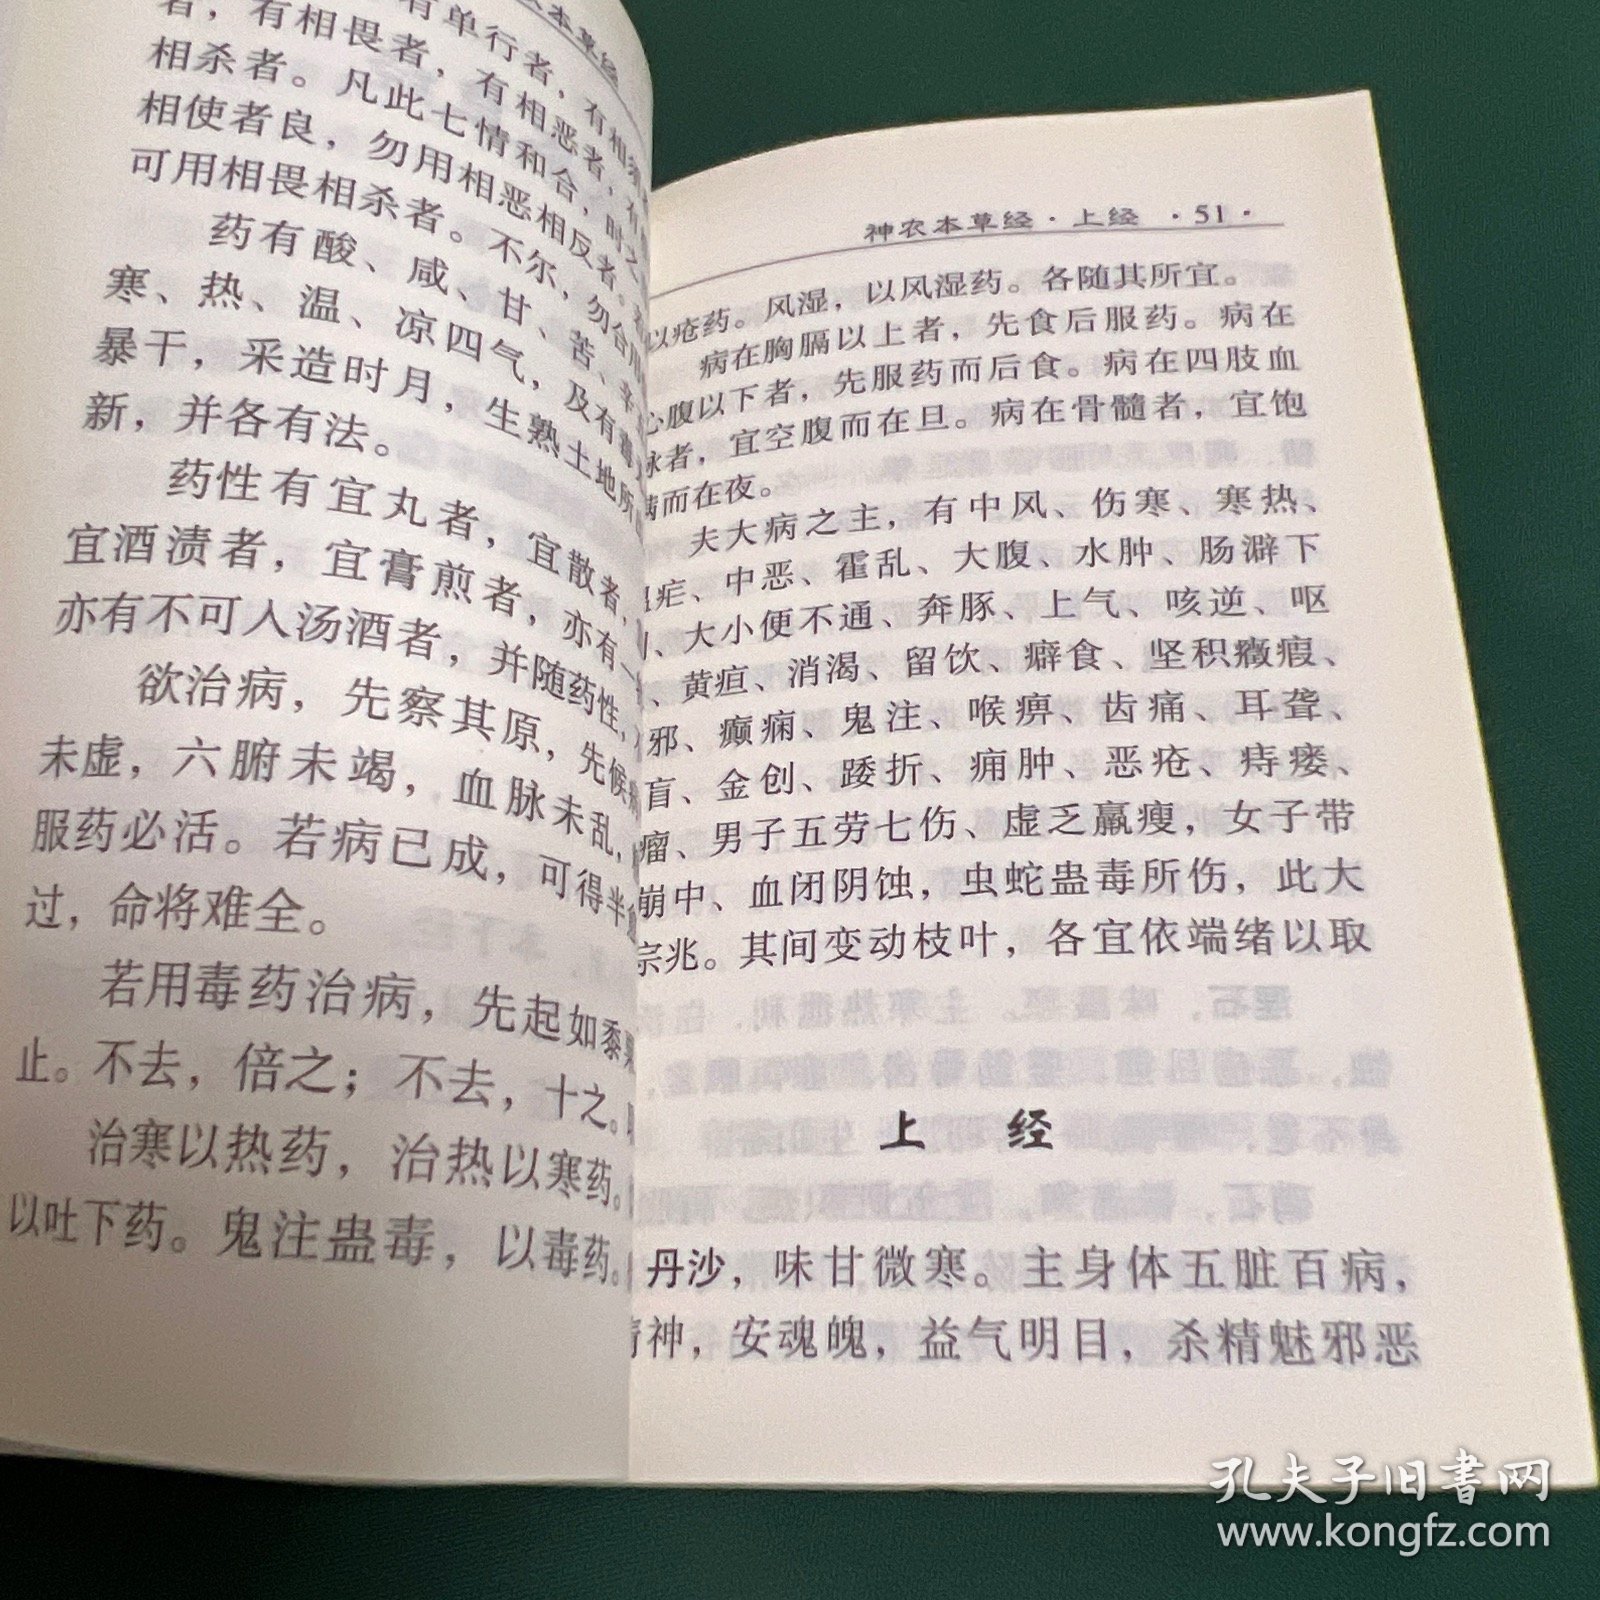 本草经
有单行者，有相须
者，有相畏者，有相恶者，有
相杀者。凡此七情和合，时之
相使者良，勿用相恶相反者。
可用相畏相杀者。不尔，勿合
药有酸、咸、甘、苦、辛
寒、热、温、凉四气，及有毒
暴干，采造时月，生熟土地所
新，并各有法。
药性有宜丸者，宜散者，
宜酒渍者，宜膏煎者，亦有一
亦有不可入汤酒者，并随药性，
欲治病，先察其原，先候
未虚，六腑未竭，血脉未乱，
服药必活。若病已成，可得半
过，命将难全。
若用毒药治病，先起如黍
止。不去，倍之；不去，十之。
治寒以热药，治热以寒药。
以吐下药。鬼注蛊毒，以毒药。
神农本草经·上经 ·51·
以疮药。风湿，以风湿药。各随其所宜。
病在胸膈以上者，先食后服药。病在
心腹以下者，先服药而后食。病在四肢血
脉者，宜空腹而在旦。病在骨髓者，宜饱
满而在夜。
夫大病之主，有中风、伤寒、寒热、
疟、中恶、霍乱、大腹、水肿、肠澼下
、大小便不通、奔豚、上气、咳逆、呕
、黄疸、消渴、留饮、癖食、坚积癥瘕、
邪、癫痫、鬼注、喉痹、齿痛、耳聋、
盲、金创、踒折、痈肿、恶疮、痔瘘、
瘤、男子五劳七伤、虚乏羸瘦，女子带
崩中、血闭阴蚀，虫蛇蛊毒所伤，此大
宗兆。其间变动枝叶，各宜依端绪以取
上 经
丹沙，味甘微寒。主身体五脏百病，
精神，安魂魄，益气明目，杀精魅邪恶
孔夫子旧书网
www.kongfz.com